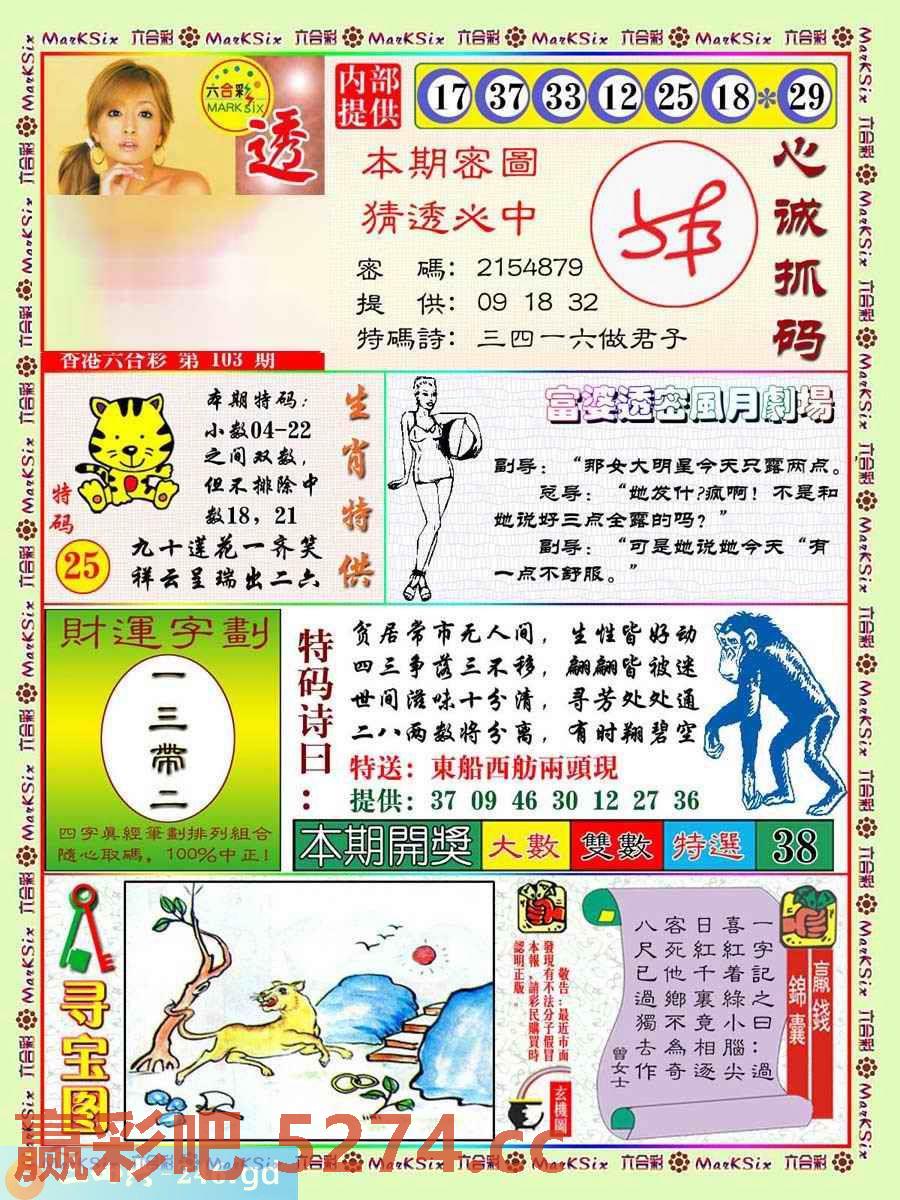 MarKSix 六合彩 MarKSix 六合彩 MarKSix 六合彩 MarKSix 六合彩 MarKSix 六合彩 MarKSix 六合彩
六合彩
MARK SIX
透
内部
提供
17 37 33 12 25 18 * 29
本期密圖
猜透必中
密 碼: 2154879
提 供: 09 18 32
特碼詩: 三四一六做君子
心诚抓码
香港六合彩 第 103 期
本期特码:
小数04-22
之间双数,
但不排除中
数18, 21
生肖特供
特码
25
九十莲花一齐笑
祥云呈瑞出二六
富婆透密風月劇場
副导: “那女大明星今天只露两点。”
总导: “她发什?疯啊! 不是和
她说好三点全露的吗? ”
副导: “可是她说她今天“有
一点不舒服。”
財運字劃
一三帶二
四字眞經筆劃排列組合
隨心取碼, 100%中正!
特码诗曰:
贫居常市无人间, 生性皆好动
四三争落三不移, 翩翩皆被迷
世间滋味十分清, 寻芳处处通
二八两数将分离, 有时翔碧空
特送: 東船西舫兩頭現
提供: 37 09 46 30 12 27 36
本期開獎 大數 雙數 特選 38
寻宝图
敬告:最近市面
發現有不法分子假冒
本報,請彩民購買時
認明正版。
玄機圖
贏錢
錦囊
一字記之曰:過
喜紅着綠小腦尖
日紅千裏竟相逐
客死他鄉不為奇
八尺已過獨去作
曾女士
赢彩吧 5274.cc
MarKSix 六合彩 MarKSix 六合彩 MarKSix 六合彩 MarKSix 六合彩 MarKSix 六合彩